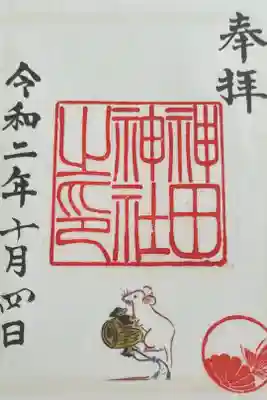 奉拝
神田
神社
之印
令和二年十月四日